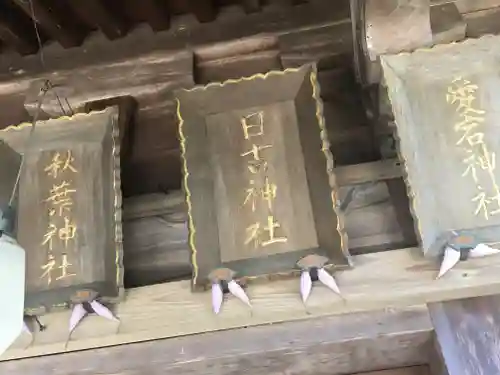 愛宕神社
日吉神社
秋葉神社